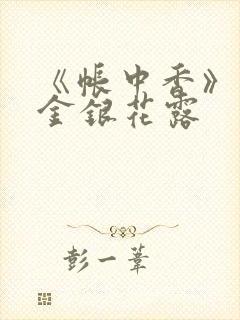 《帐中香》
金银花露
彭一苇